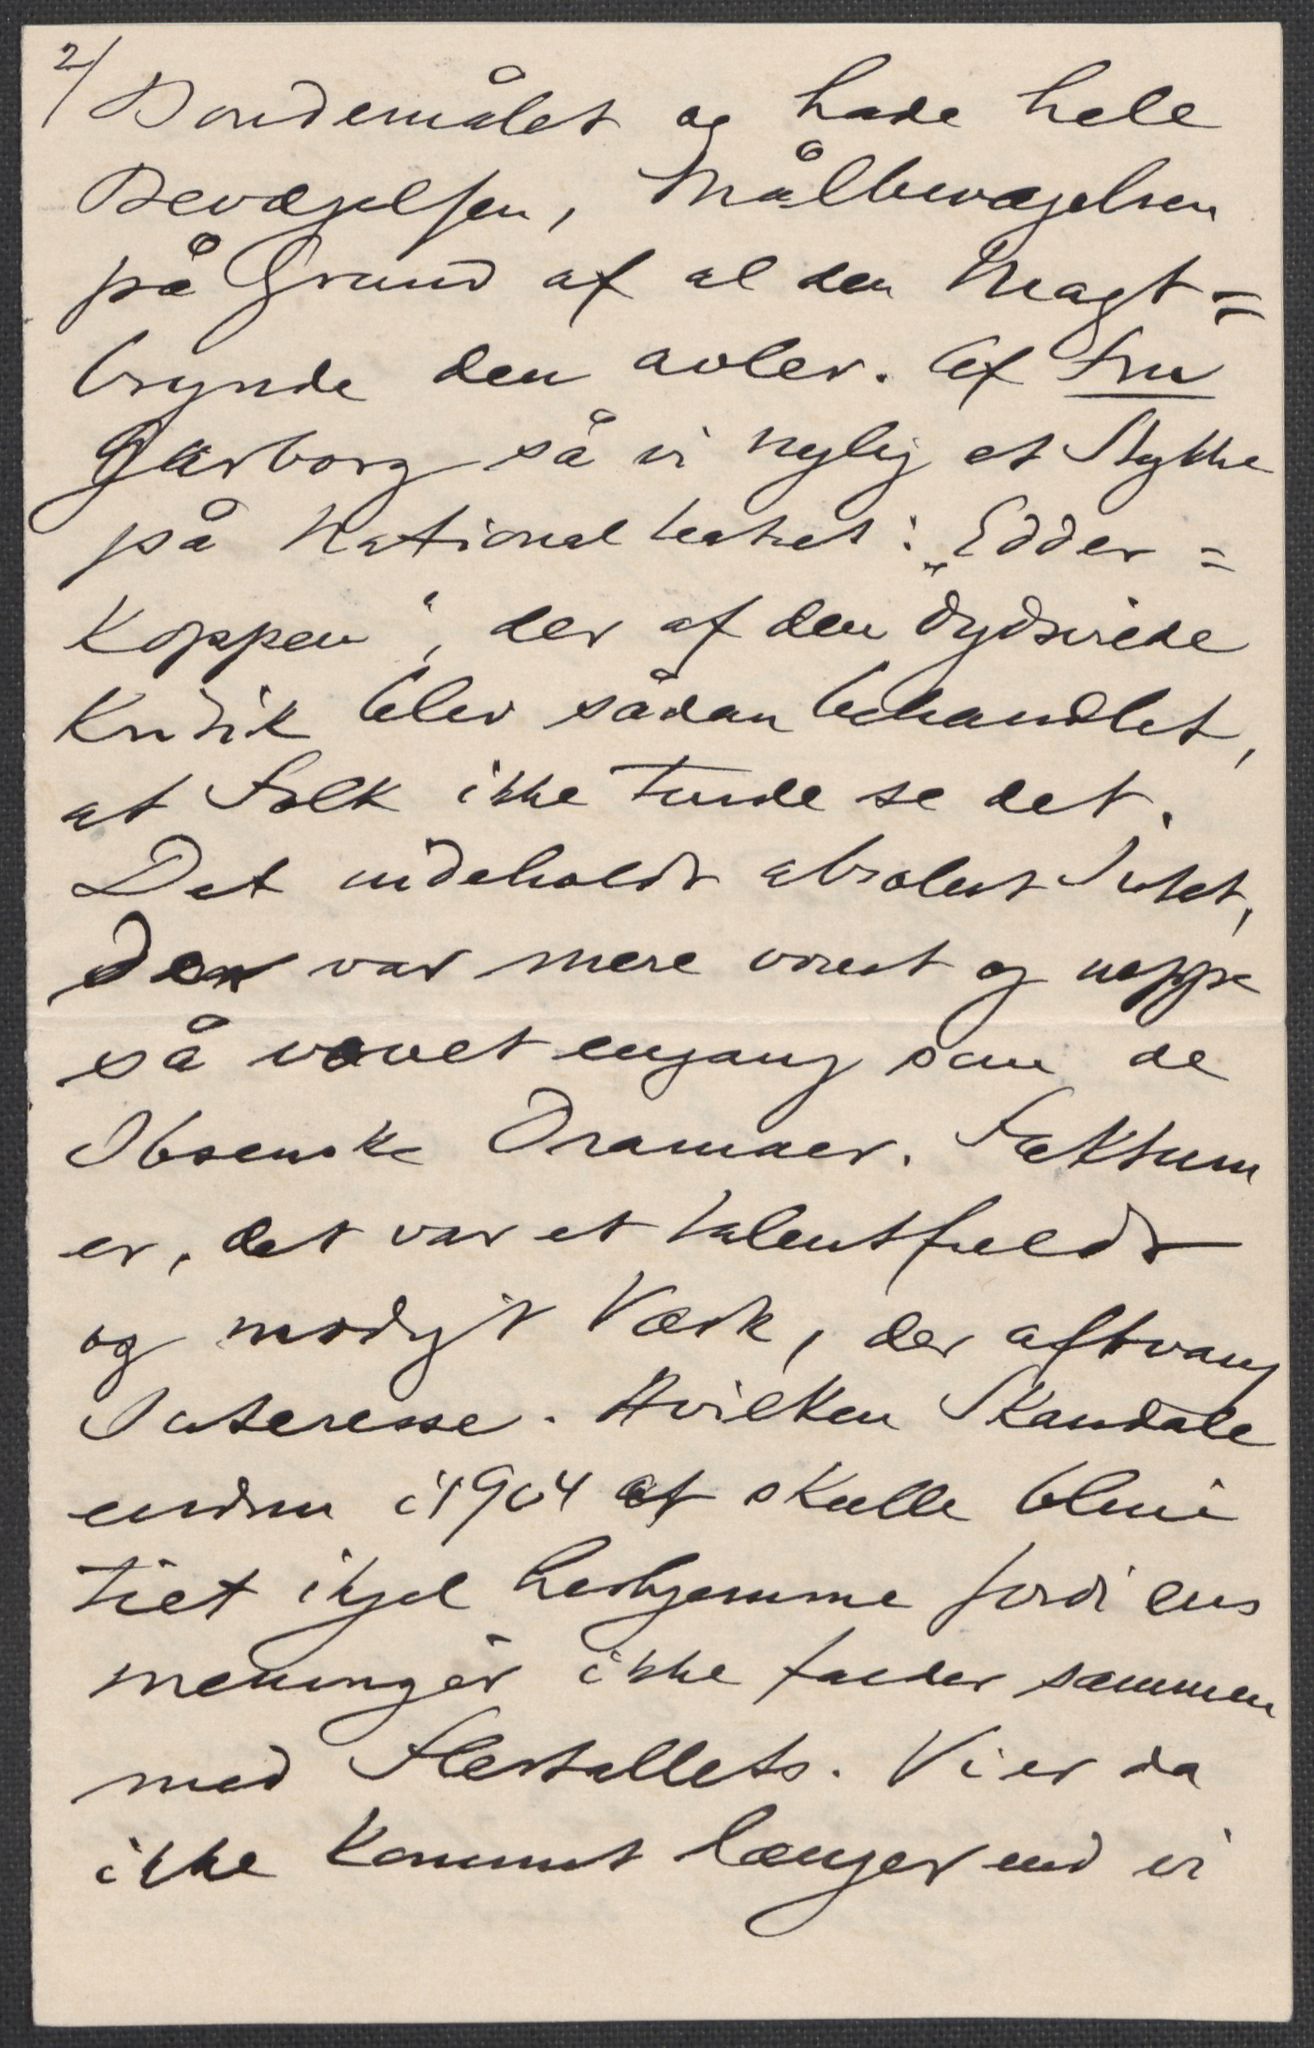 2/
Bondemålet og hade hele
Bevægelsen, Målbevægelsen
på Grund af al den Magt=
brynde den avler. Af Fru
Garborg så vi nylig et Stykke
på Nationalteatret: „Edder=
Koppen", der af den dydsirede
Kritik blev sådan behandlet,
at Folk ikke turde se det.
Det indeholdt absolut Intet,
der var mere vovet og neppe
så vovet engang som de
Ibsenske Dramaer. Faktum
er, det var et talentfuldt
og modigt Værk, der aftvang
Interesse. Hvilken Skandale
endnu i 1904 at skulle blive
tiet ihjel herhjemme fordi ens
meninger ikke falder sammen
med Flertallets. Vi er da
ikke kommet længer end vi